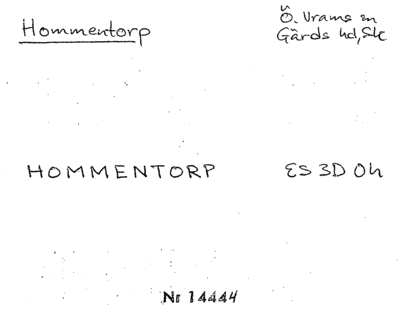 Hommentorp
Ö. Vrams sn
Gärds hd, Sk
HOMMENTORP
ES 3D 0h
Nr 14444